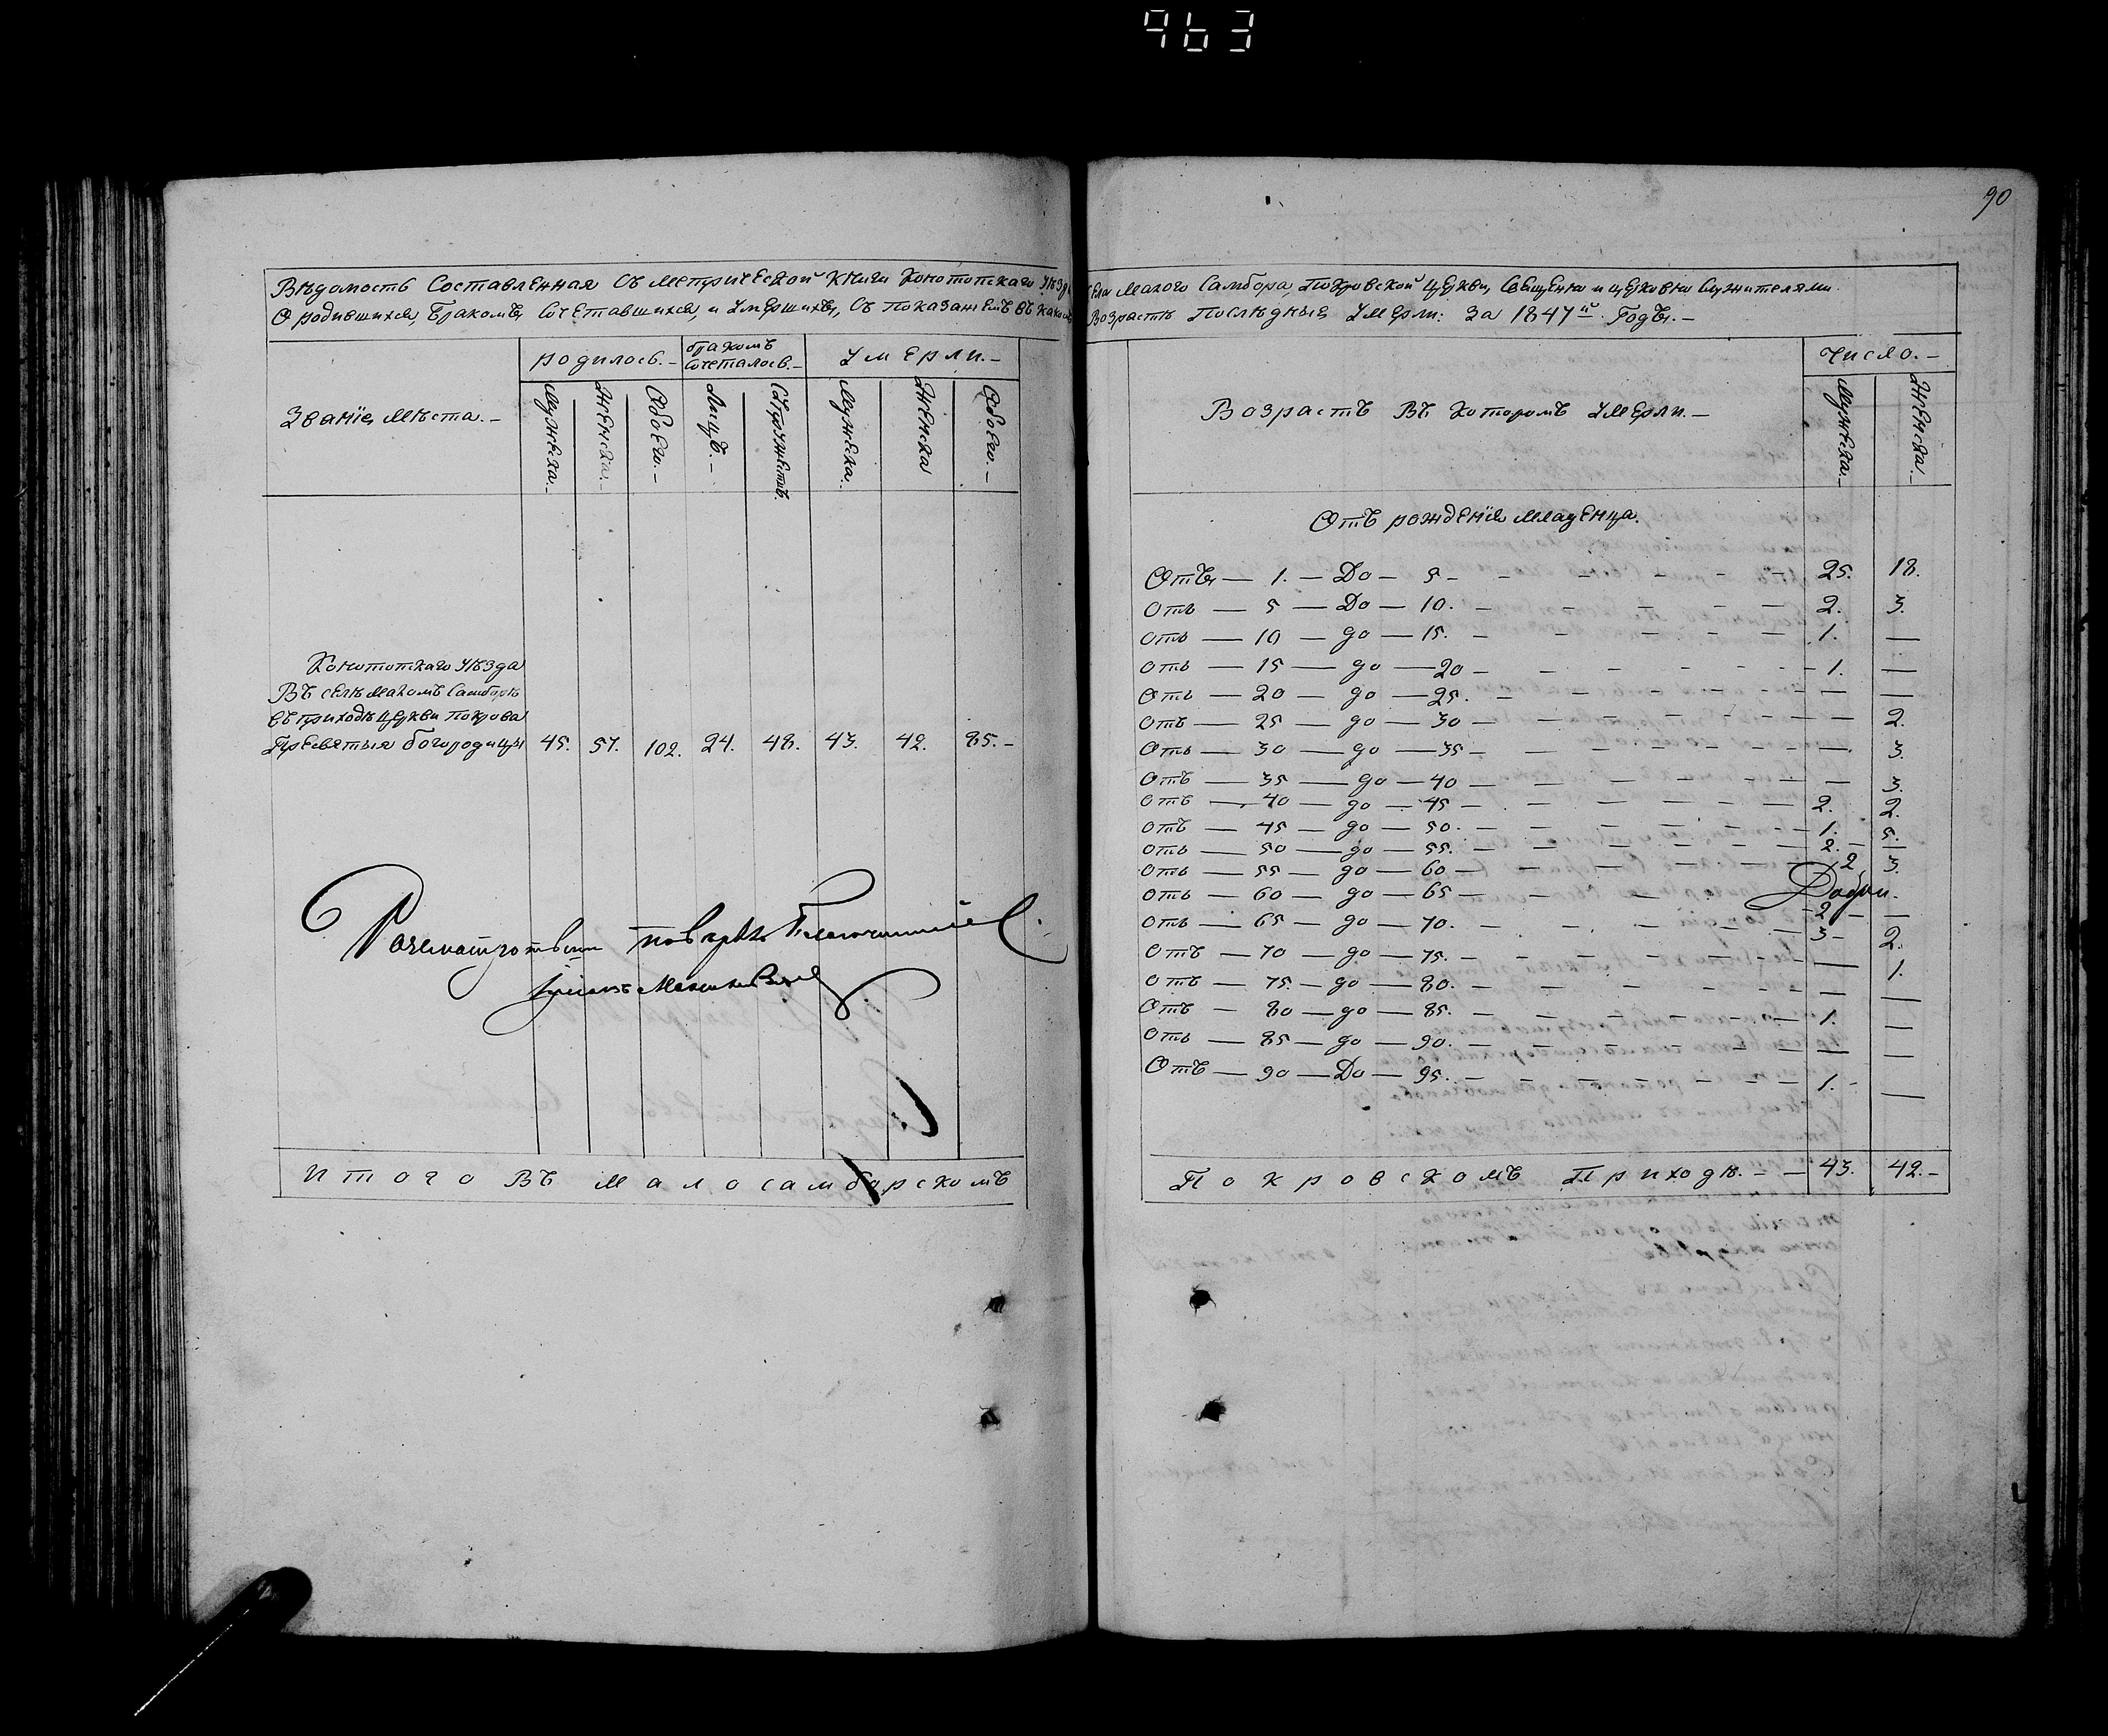 963
90
Вѣдомость Составленная Съ Метрической Книги Конотопскаго Уѣзда Села Малого Самбора, Покровской Церкви, Священно и церковно Служителями.
О родившихся, Бракомъ Сочетавшихся, и Умершихъ, Съ показанiемъ въ какомъ Возрастѣ Послѣднiе Умерли: За 1847й. Годъ.—
Званiе Мѣста.—
родилось.—
бракомъ Сочеталось.—
Умерли.—
Мужеска.—
Женска.—
Обоего.—
Лицъ.—
Мужеска.—
Женска
Обоего.—
Конотопскаго Уѣзда
Въ селѣ Маломъ Самборѣ
въ приходѣ церкви Покрова
Пресвятыя богородицы 45. 57. 102. 24. 48. 43. 42. 85.—
Итого Въ Малосамборскомъ
Возрастъ Въ Которомъ Умерли.—
Число.—
Мужеска.—
Женска.—
Отъ рожденiя Младенца.
Отъ — 1. — До — 5 — 25. 18.
Отъ — 5 — До — 10. — 2. 3.
Отъ — 10 — до — 15. — 1. —
Отъ — 15 — до — 20 — 1. —
Отъ — 20 — до — 25. — — —
Отъ — 25 — до — 30 — — 2.
Отъ — 30 — до — 35 — — 3.
Отъ — 35 — до — 40 — — 3.
Отъ — 40 — до — 45 — 2. 2.
Отъ — 45 — до — 50. — 1. 5.
Отъ — 50 — до — 55. — 2. —
Отъ — 55 — до — 60 — 2 3.
Отъ — 60 — до — 65 — 2 —
Отъ — 65 — до — 70. — 3 — 2.
Отъ — 70 — до — 75. — — 1.
Отъ — 75. — до — 80. — — —
Отъ — 80 — до — 85. — 1. —
Отъ — 85 — до — 90. — — —
Отъ — 90 — До — 95. — 1. —
Покровскомъ Приходѣ. — — 43. 42.—